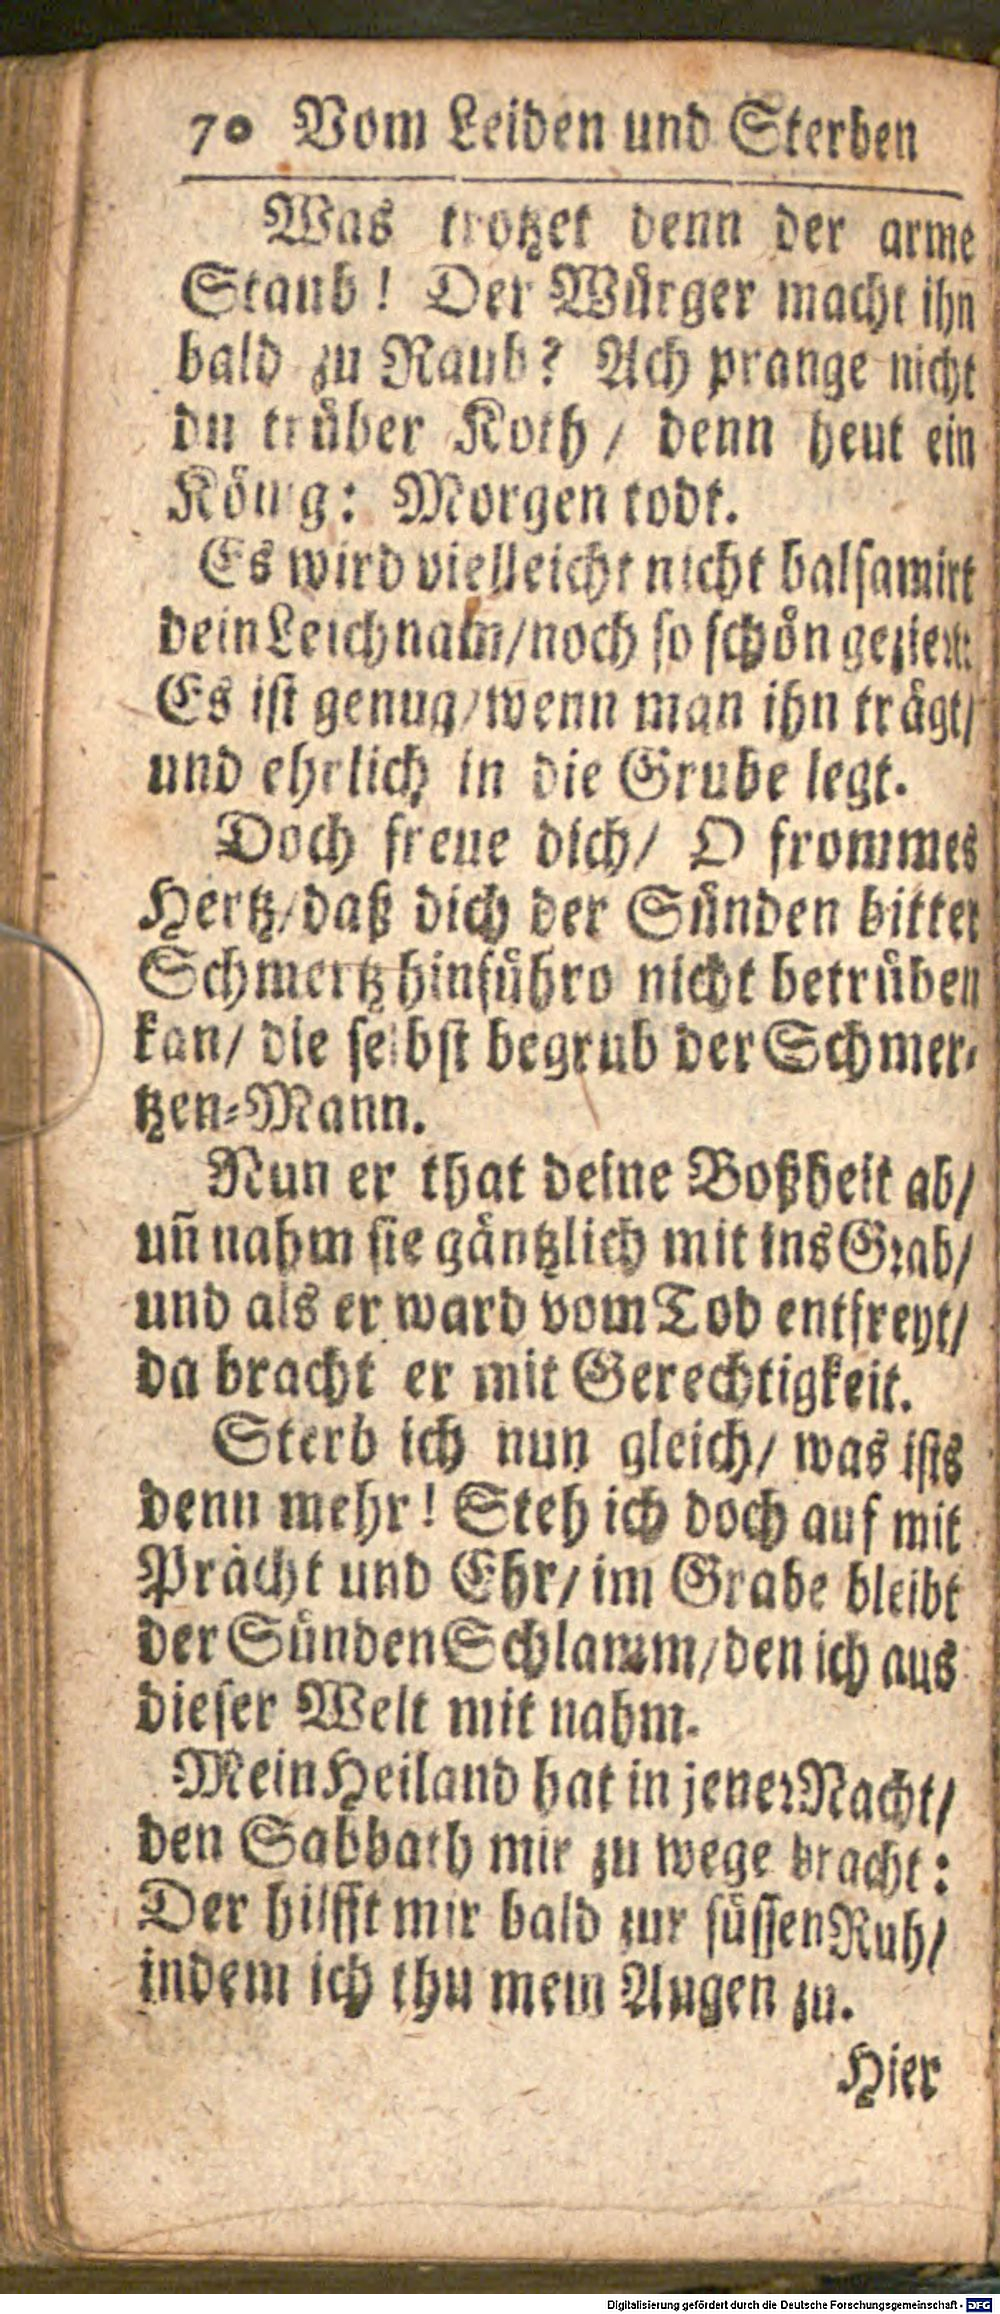 70 Vom Leiden und Sterben
Was trotzet denn der arme
Staub! Der Würger macht ihn
bald zu Raub? Ach prange nicht
du trüber Koth / denn heut ein
König: Morgen todt.
Es wird vielleicht nicht balsamirt
dein Leichnam/noch so schön geziert:
Es ist genug/wenn man ihn trägt/
und ehrlich in die Grube legt.
Doch freue dich/ O frommes
Hertz/daß dich der Sünden bitter
Schmertz hinführo nicht betrüben
kan/ die selbst begrub der Schmer-
tzen-Mann.
Nun er that deine Boßheit ab/
uñ nahm sie gäntzlich mit ins Grab/
und als er ward vom Tod entfreyt/
da bracht er mit Gerechtigkeit.
Sterb ich nun gleich/ was ists
denn mehr! Steh ich doch auf mit
Pracht und Ehr/ im Grabe bleibt
der Sünden Schlamm/den ich aus
dieser Welt mit nahm.
Mein Heiland hat in jener Nacht/
den Sabbath mir zu wege bracht:
Der hilfft mir bald zur süssen Ruh/
indem ich thu mein Augen zu.
Hier
Digitalisierung gefördert durch die Deutsche Forschungsgemeinschaft - DFG